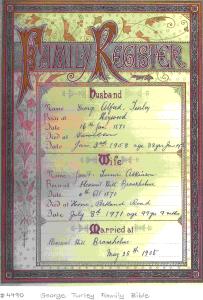 Family Register
Husband
Name George Alfred Turley
Born at Heywood
Date 16th Jan 1871
Died at
Date Jan 3rd 1958 age
Wife
Name Atkinson
Born at Mount Hill Bramhope
Date 6th 1871
Died at Home, Portland Road
Date July 8th 1971 age 99
Married at
Mount Hill Bramhope
May 25th 1905
#4990 George Turley Family Bible